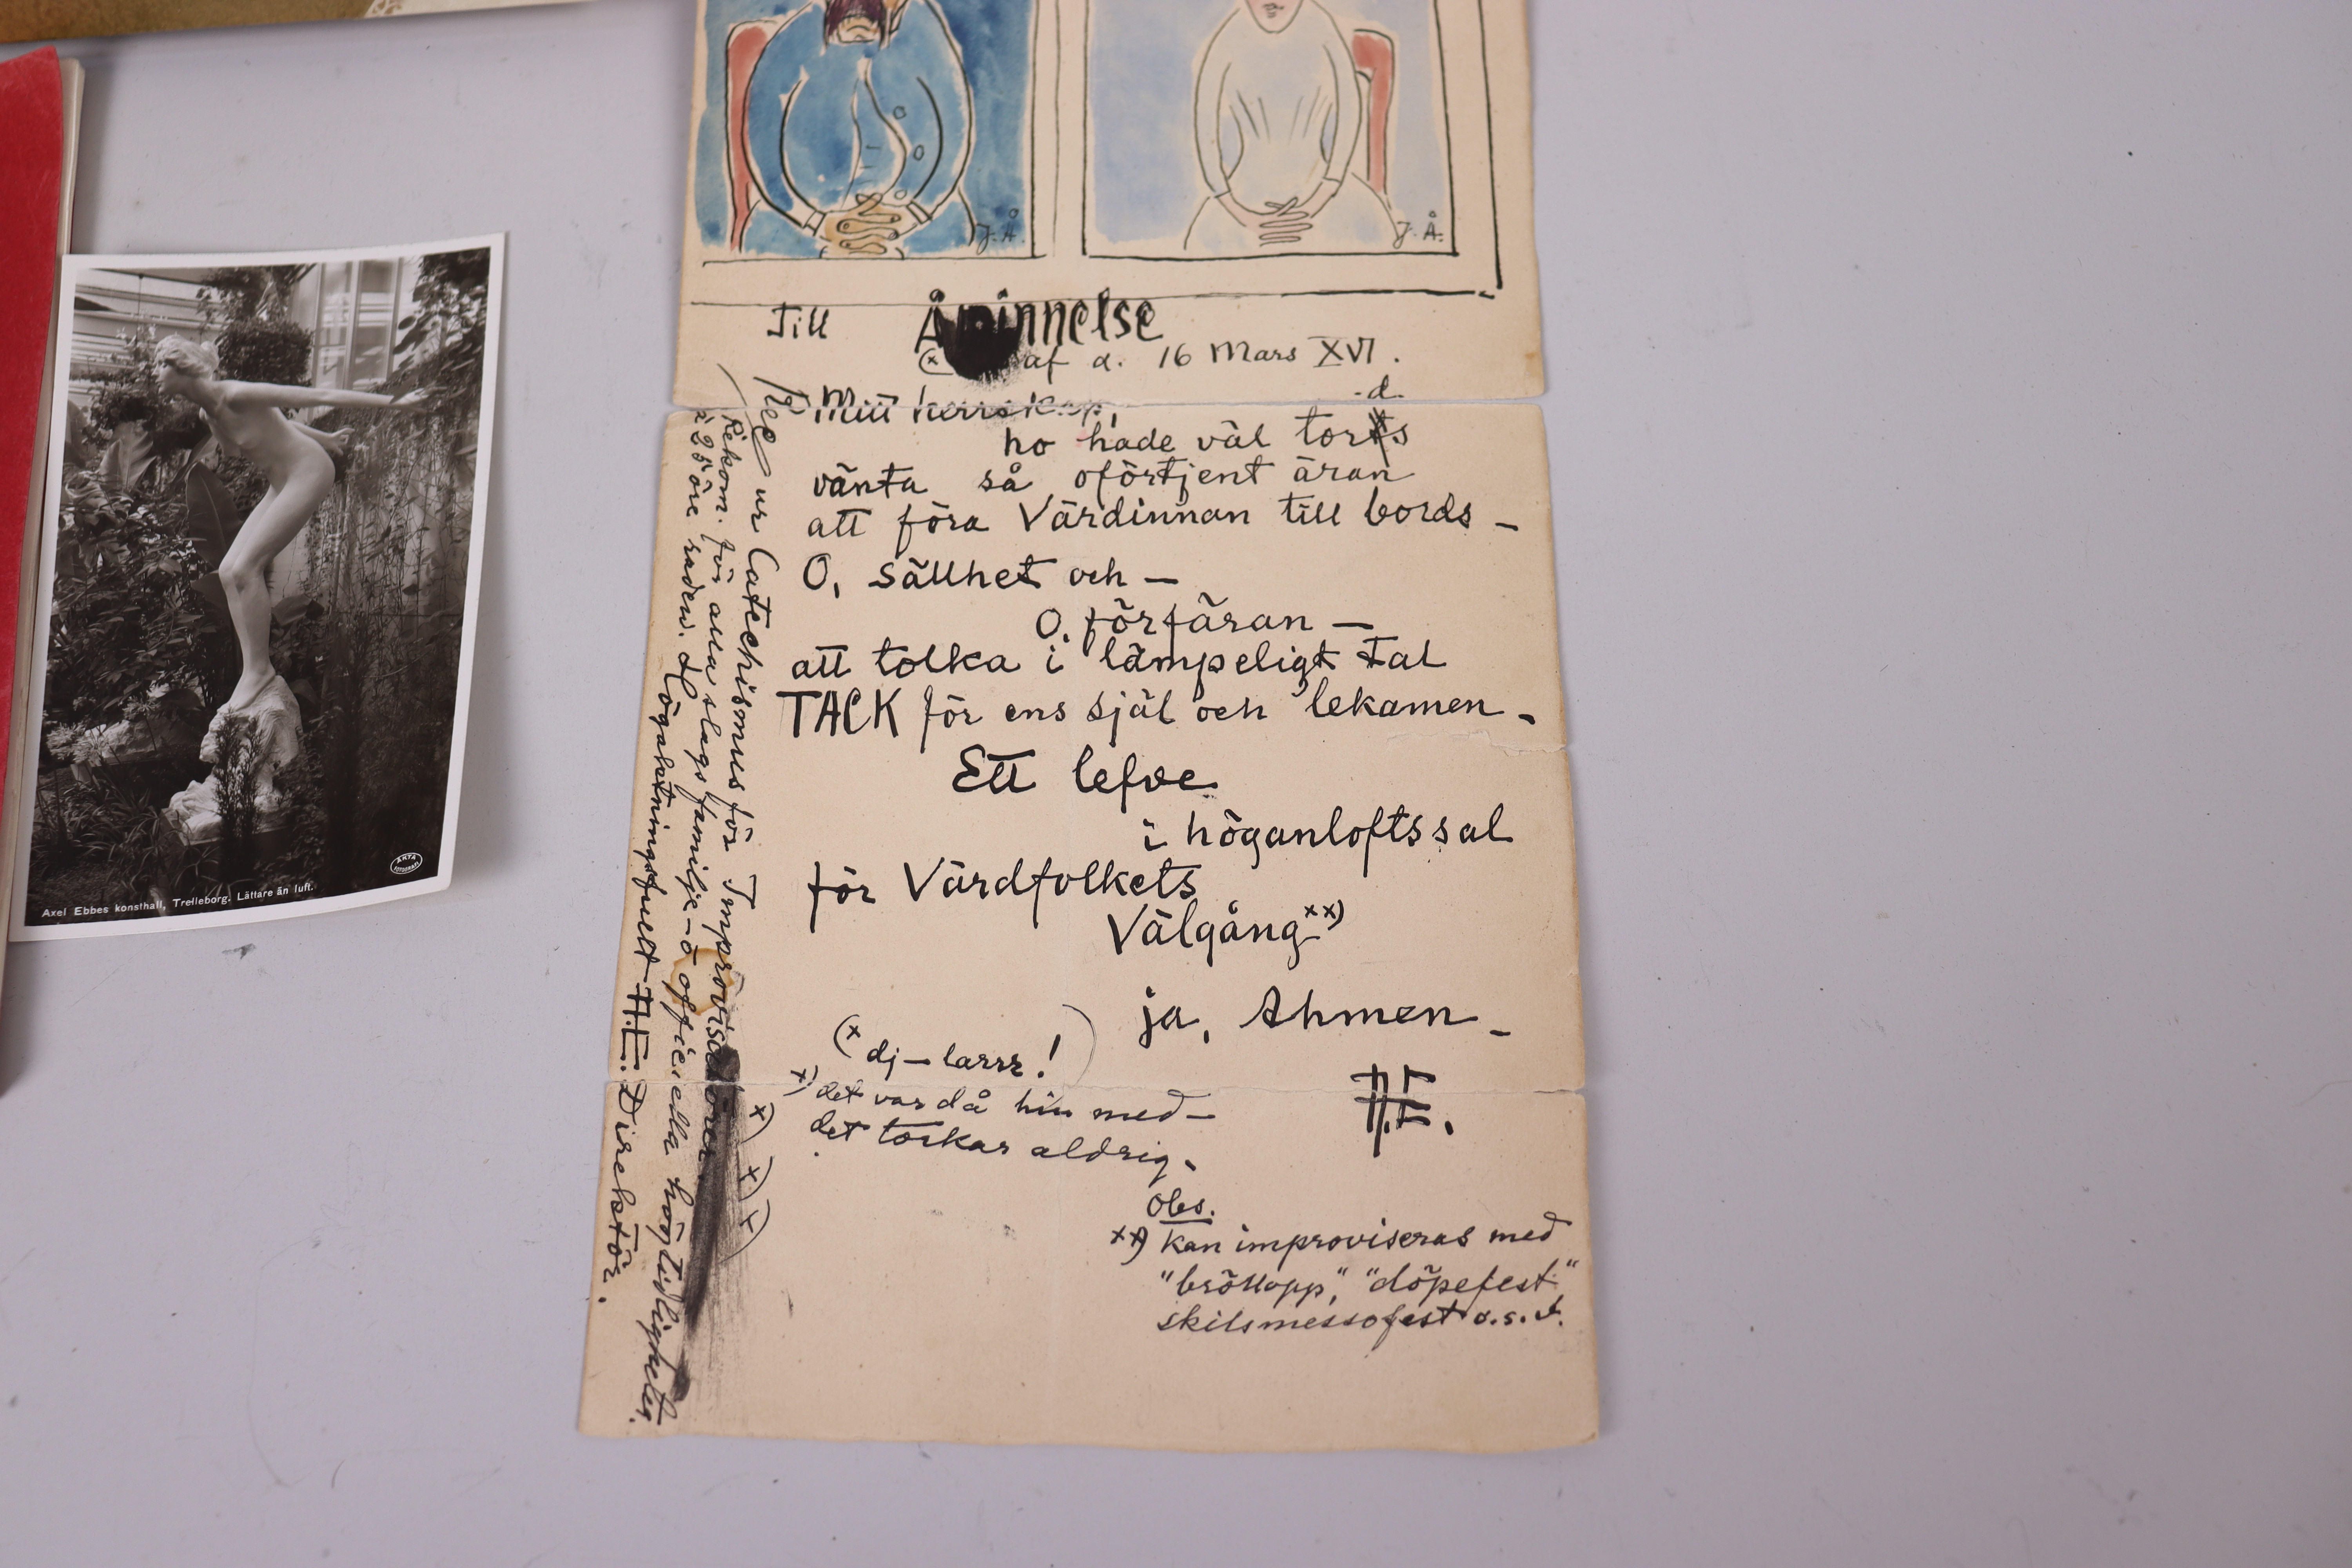 J.Å.
J.Å.
Till Åminnelse
(x af d. 16 Mars XVI.
Mitt herrskap,
-d.
ho hade väl torts
vänta så oförtjent äran
att föra Värdinnan till bords –
O, sällhet och –
O, förfäran –
att tolka i lämpeligt Tal
TACK för ens själ och lekamen –
Ett lefve
i höganloftssal
för Värdfolkets
Välgång xx)
ja, Ahmen –
(x dj – larrr!)
x) det var då hin med –
det torkar aldrig.
A.E.
Obs.
xx) kan improviseras med
"bröllopp," "döpefest,"
skilsmessofest o.s.v.
ur Catechismus för Improvisatörer x) x) x)
Rekom. för alla slags familje- o officiella högtidligheter.
à 25 öre raden. Högaktningsfullt A.E. Direktör.
Axel Ebbes konsthall, Trelleborg. Lättare än luft.
ÄKTA
FOTOGRAFI